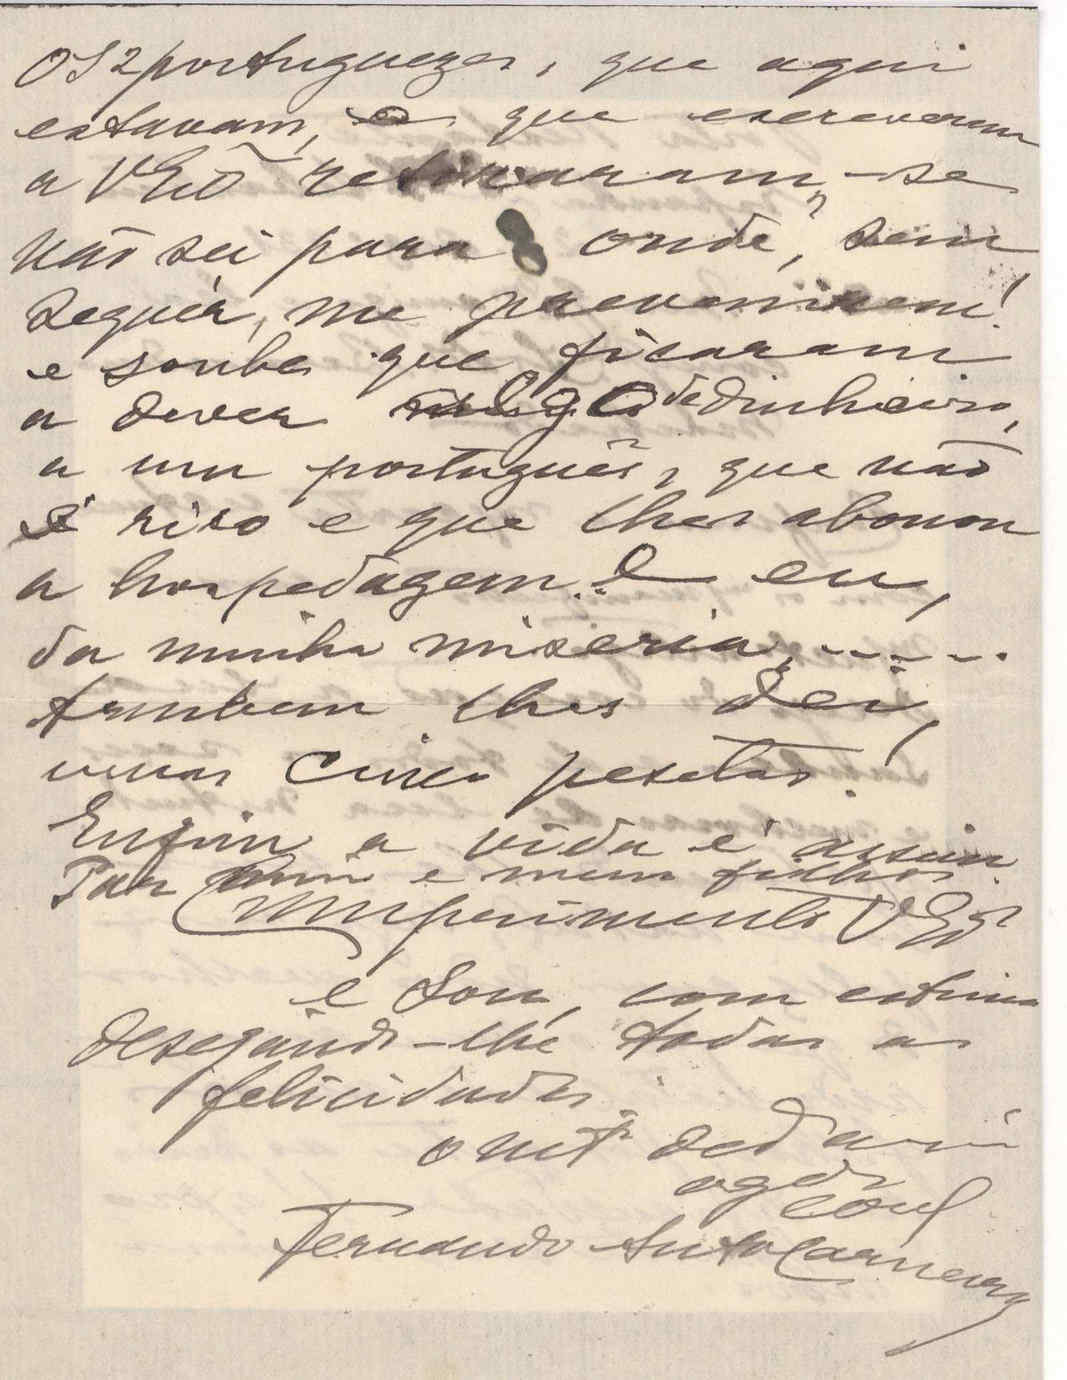 Os 2 portuguezes, que aqui
estavam, e que escreveram
a VExª retiraram-se
não sei para onde, sem
sequér, me prevenirem!
e soube que ficaram
a dever algo de dinheiro,
a um português, que não
é rico e que lhes abonou
a hospedagem. E eu,
da minha miseria,.....
tambem lhes dei,
umas cinco pesetas!
Enfim a vida é assim
Por mim e meus filhos
Cumprimento VExª
e Sou, com estima
desejando-lhe todas as
felicidades.
o mtº ded am
agdº
Fernando Carneiro